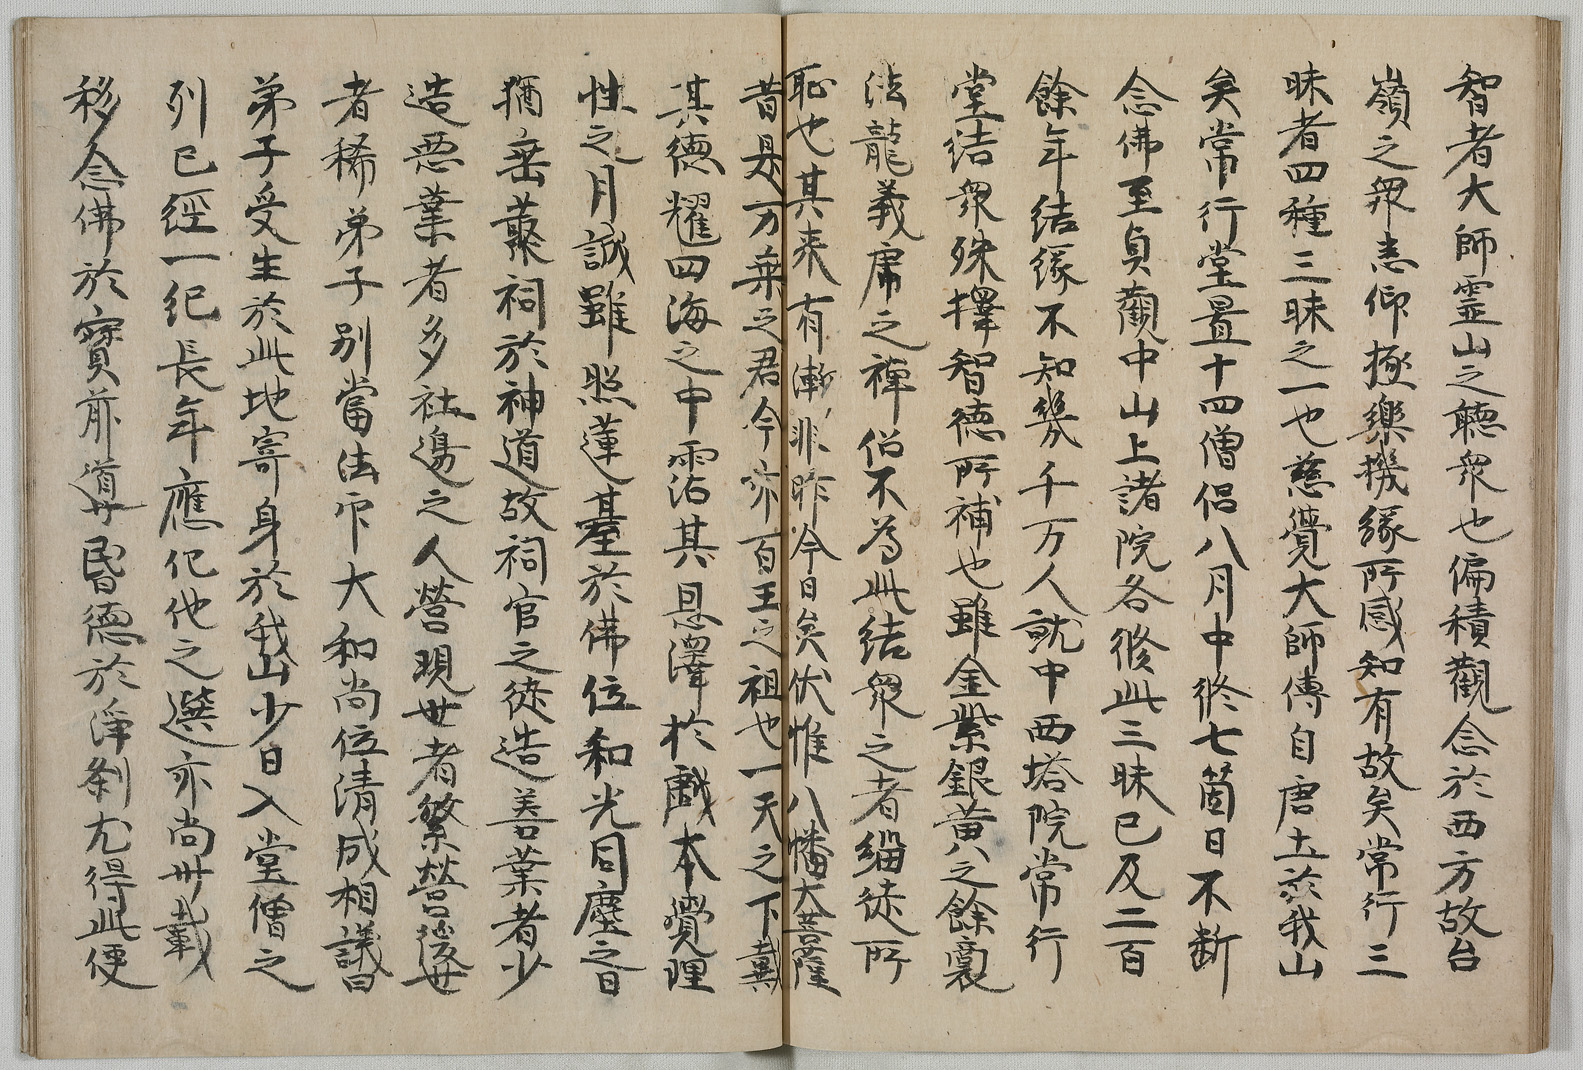 智者大師霊山之聴衆也偏積觀念於西方故台
嶺之衆悉仰極樂機縁所感知有故矣常行三
昧者四種三昧之一也慈覺大師傳自唐土莅我山
矣常行堂置十四僧侶八月中修七箇日不断
念佛至貞觀中山上諸院各修此三昧已及二百
餘年結縁不知幾千万人就中西塔院常行
堂結衆殊擇智德所補也雖金紫銀黄之餘裔
法龍義虎之禅侶不為此結衆之者緇徒所
恥也其来有漸非昨今日矣伏惟八幡大菩薩
昔是万乗之君今亦百王之祖也一天之下戴
其德耀四海之中霑其恩澤於戯本覺理
性之月誠雖照蓮臺於佛位和光同塵之日
猶垂叢祠於神道故祠官之徒造善業者少
造惡業者多社邊之人營現世者繁營後世
者稀弟子別當法印大和尚位清成相議曰
弟子受生於此地寄身於我山少日入堂僧之
列已經一紀長年應化他之選亦尚卅載
移念佛於寳前道世昏德於淨刹尤得此便